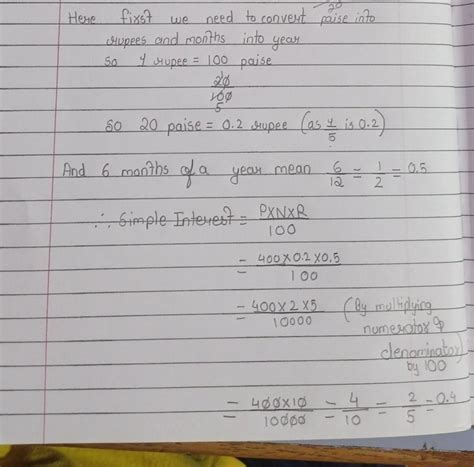 20
Here first we need to convert paise into
rupees and months into year
so 1 rupee = 100 paise
20
100
5
so 20 paise = 0.2 rupee (as 1/5 is 0.2)
And 6 months of a year mean 6/12 = 1/2 = 0.5
∴ Simple Interest = P×N×R/100
= 400×0.2×0.5/100
= 400×2×5/10000 (By multiplying
numerator &
denominator)
by 100
= 400×10/10000 = 4/10 = 2/5 = 0.4